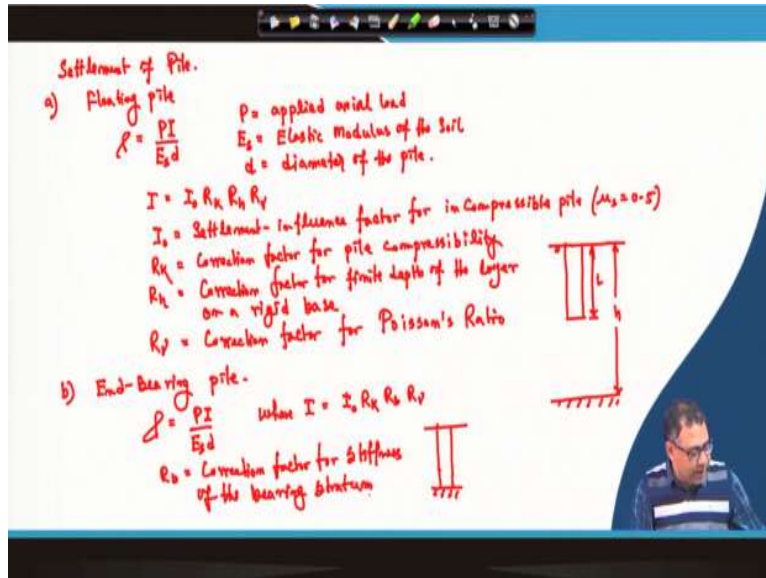 Settlement of Pile.
a) Floating pile
ρ = PI / E_s d
P = applied axial load
E_s = Elastic Modulus of the Soil
d = diameter of the pile.
I = I_o R_K R_h R_ν
I_o = Settlement-influence factor for incompressible pile (μ_s = 0.5)
R_K = Correction factor for pile compressibility
R_h = Correction factor for finite depth of the layer
on a rigid base
R_ν = Correction factor for Poisson's Ratio
L
h
b) End-Bearing pile.
ρ = PI / E_s d where I = I_o R_K R_b R_ν
R_b = Correction factor for stiffness
of the bearing stratum